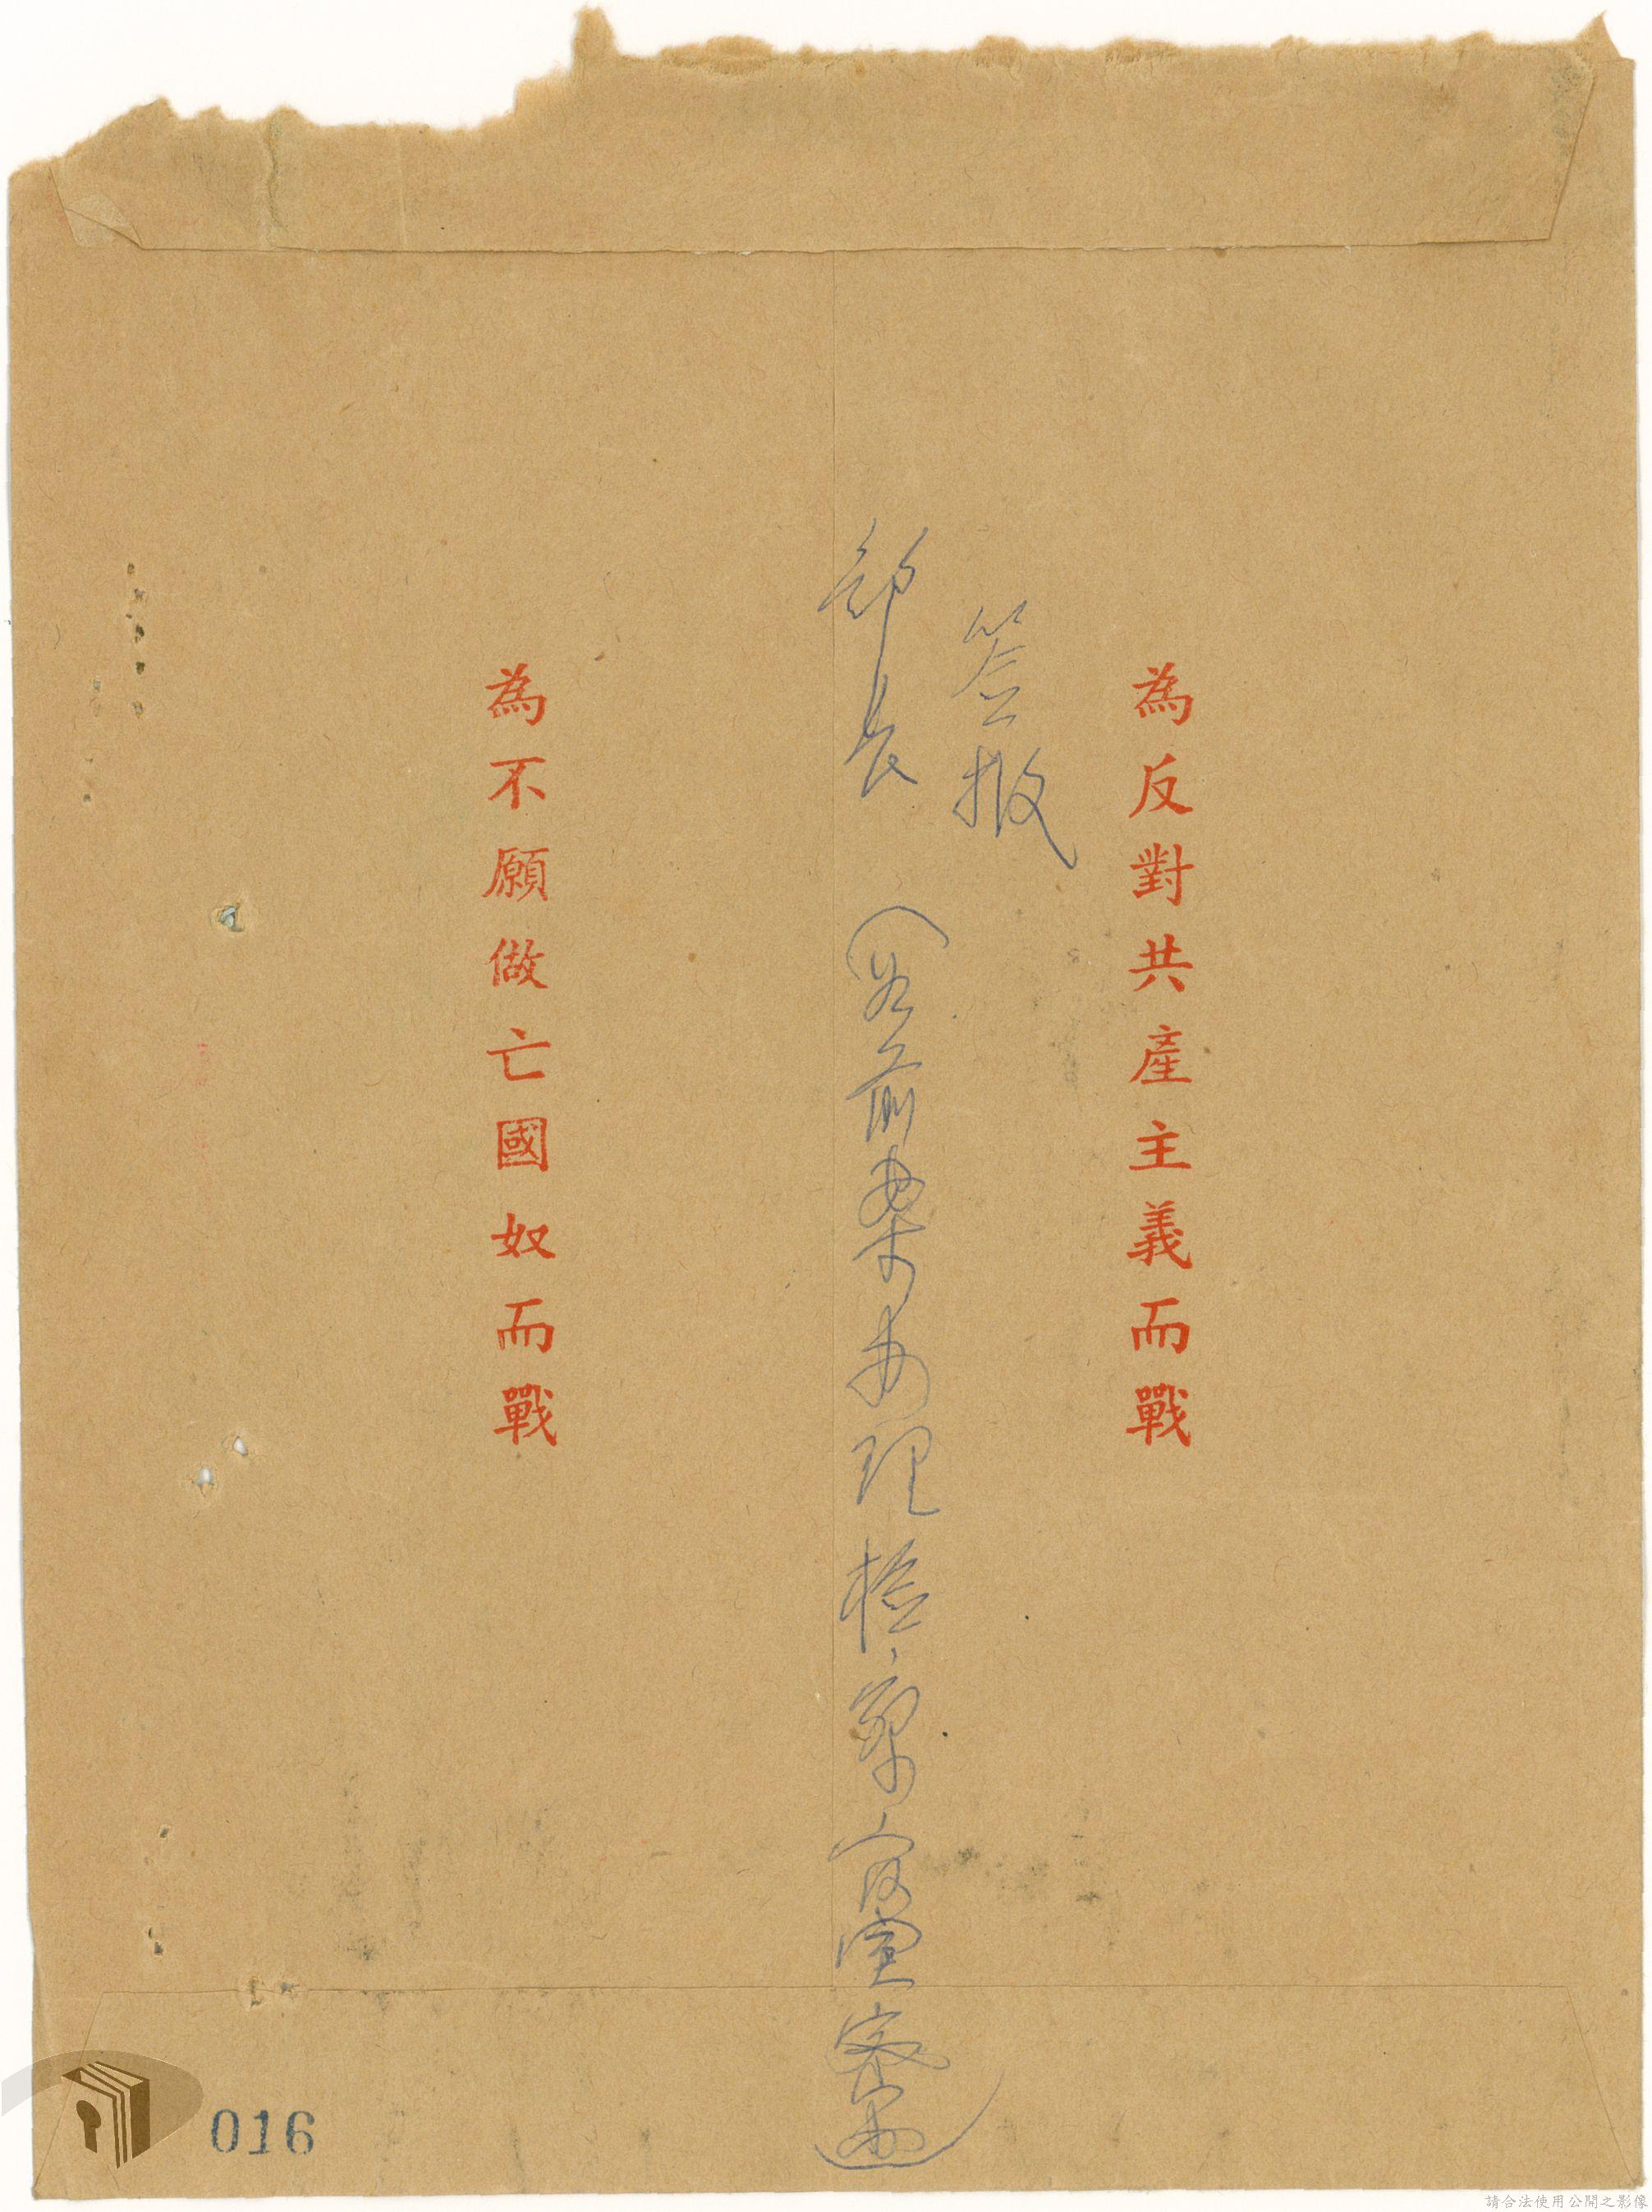 為反對共產主義而戰
簽報
部長（另前案辦理檢察官
為不願做亡國奴而戰
016
請合法使用公開之影像